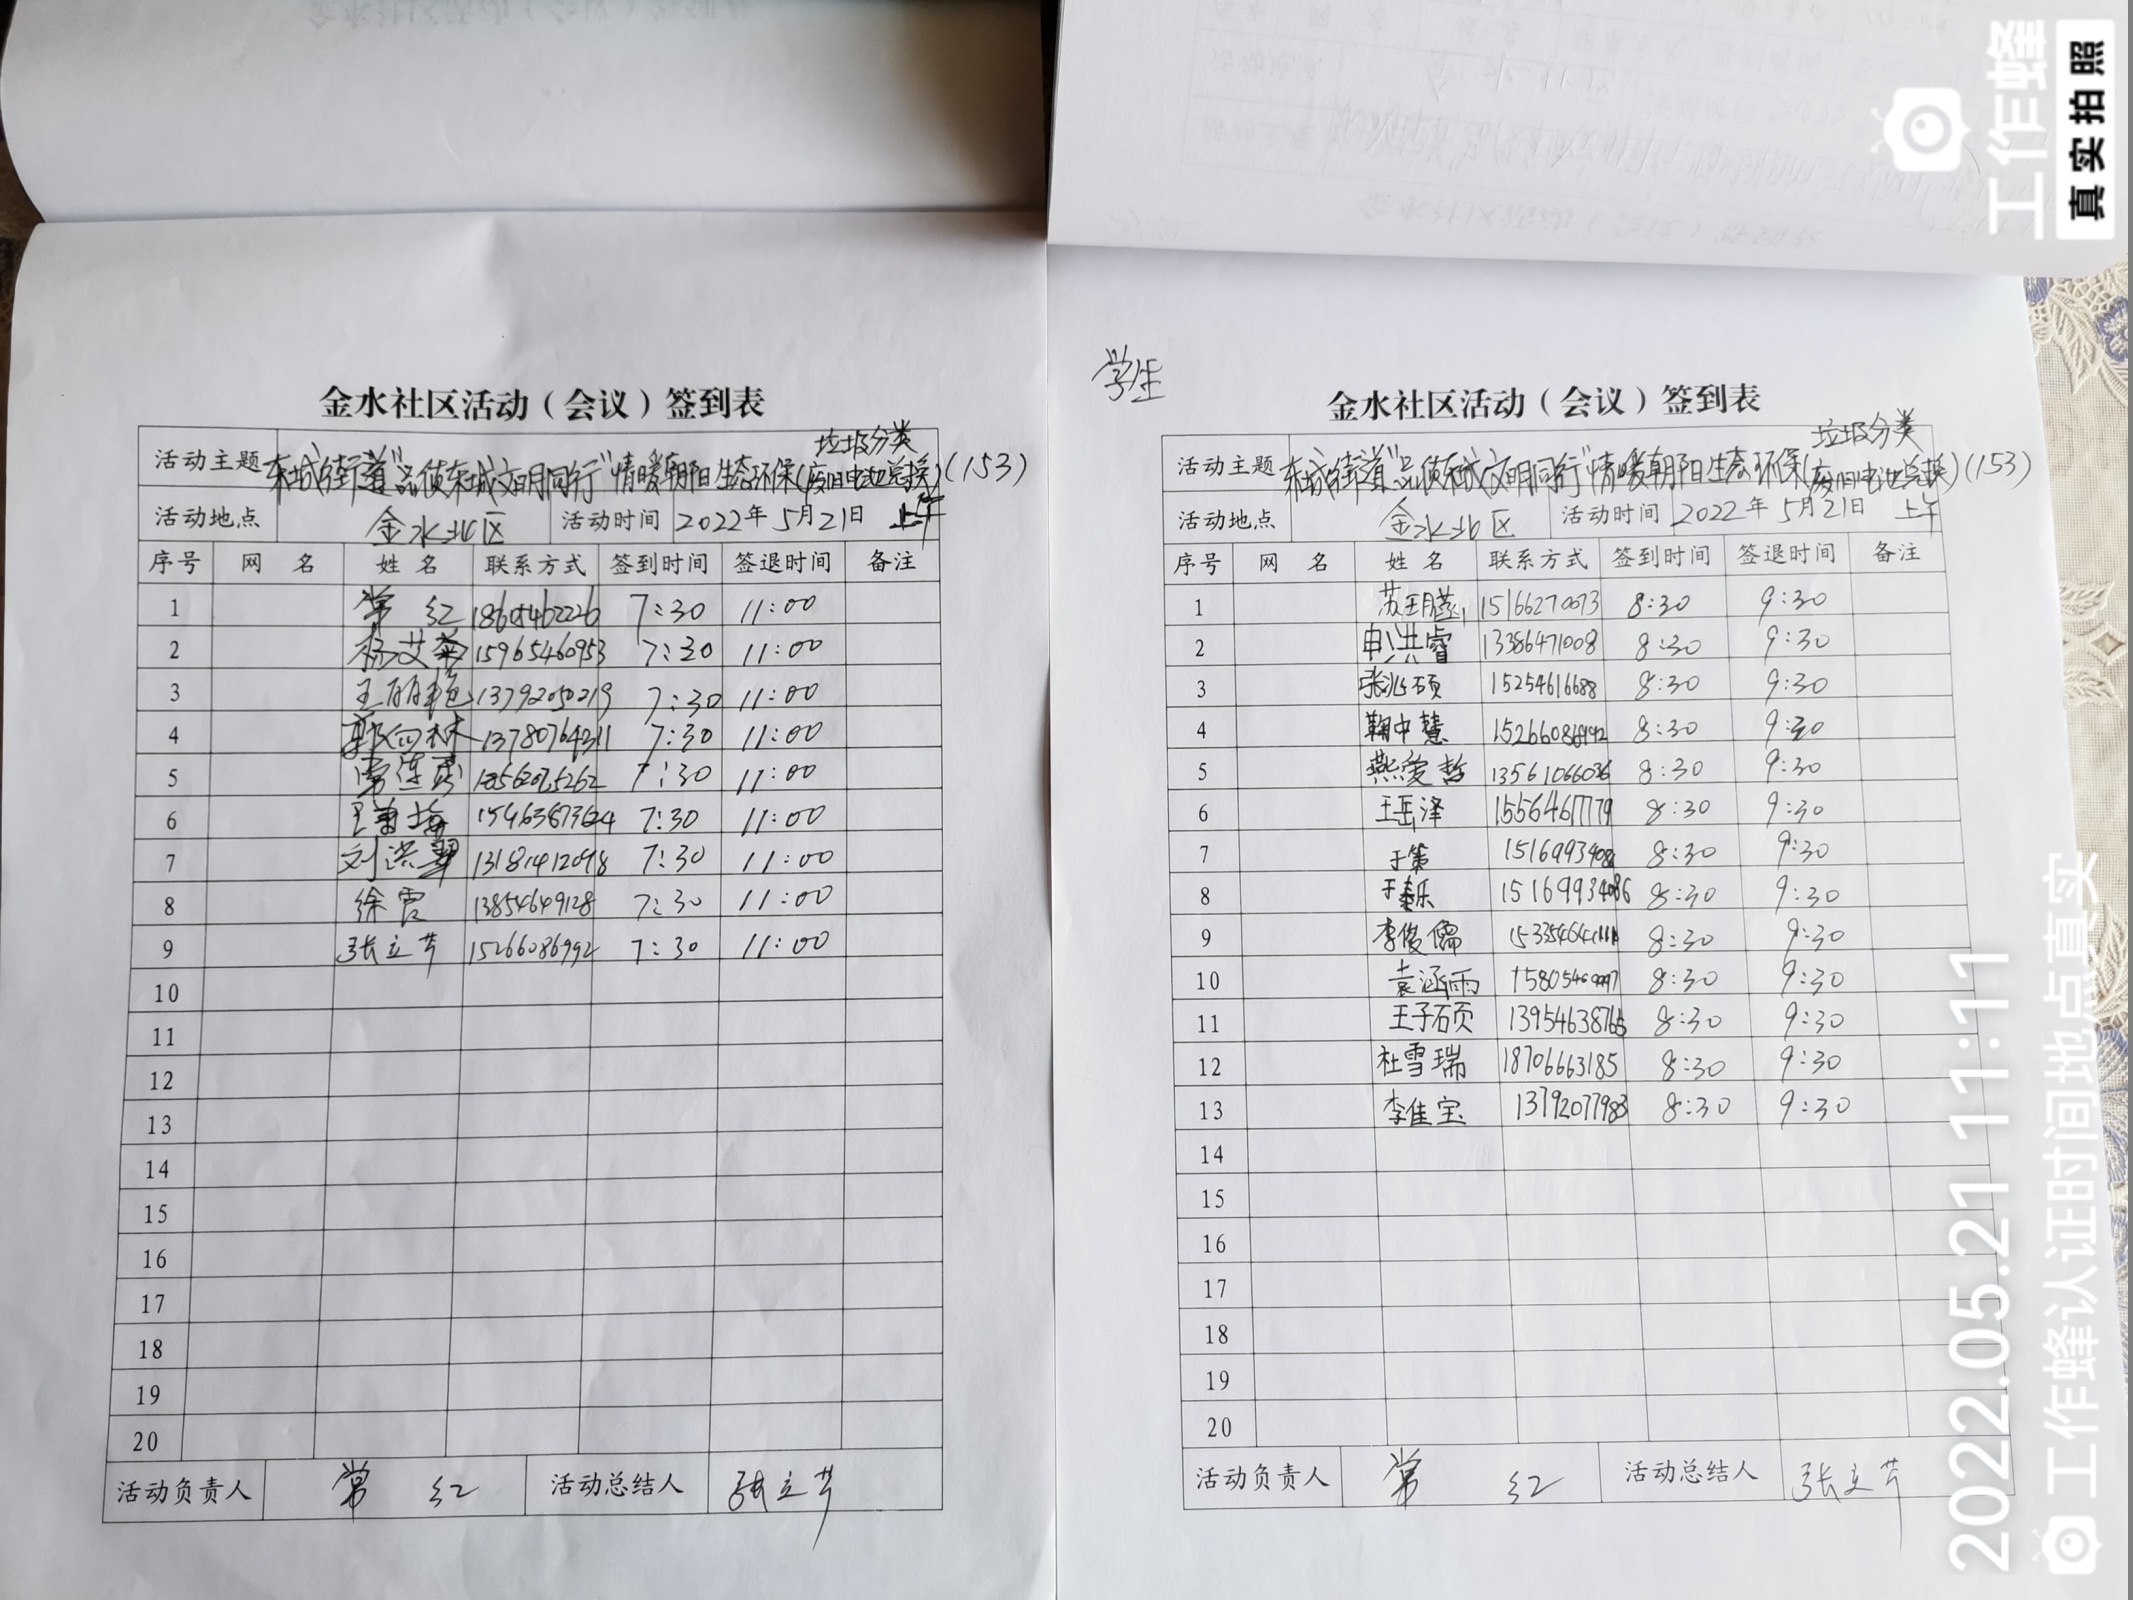 金水社区活动（会议）签到表
垃圾分类
活动主题 东城街道"品质东城文明同行"情暖朝阳生态环保(废旧电池兑换)(153)
活动地点 金水北区 活动时间 2022年5月21日 上午
序号 网 名 姓 名 联系方式 签到时间 签退时间 备注
1 常 红 18605462226 7:30 11:00
2 杨艾 15965460953 7:30 11:00
3 王 13792050219 7:30 11:00
4 郭四林 13780764311 7:30 11:00
5 常连 7:30 11:00
6 王 7:30 11:00
7 刘洪翠 13181412098 7:30 11:00
8 徐霞 13854649128 7:30 11:00
9 张立芹 15266086992 7:30 11:00
10
11
12
13
14
15
16
17
18
19
20
活动负责人 常 红 活动总结人 张立芹
学生
金水社区活动（会议）签到表
垃圾分类
活动主题 东城街道"品质东城文明同行"情暖朝阳生态环保(废旧电池兑换)(153)
活动地点 金水北区 活动时间 2022年5月21日 上午
序号 网 名 姓 名 联系方式 签到时间 签退时间 备注
1 苏玥 15166270073 8:30 9:30
2 申洪睿 13386471008 8:30 9:30
3 张兆硕 15254616688 8:30 9:30
4 鞠中慧 8:30 9:30
5 燕爱哲 13561066036 8:30 9:30
6 王岳泽 15564617779 8:30 9:30
7 于策 8:30 9:30
8 于乐 15169934086 8:30 9:30
9 李俊儒 8:30 9:30
10 袁涵雨 8:30 9:30
11 王子硕 13954638765 8:30 9:30
12 杜雪瑞 18706663185 8:30 9:30
13 李佳宝 13792077983 8:30 9:30
14
15
16
17
18
19
20
活动负责人 常 红 活动总结人 张立芹
工作蜂
真实拍照
2022.05.21 11:11
工作蜂认证时间地点真实